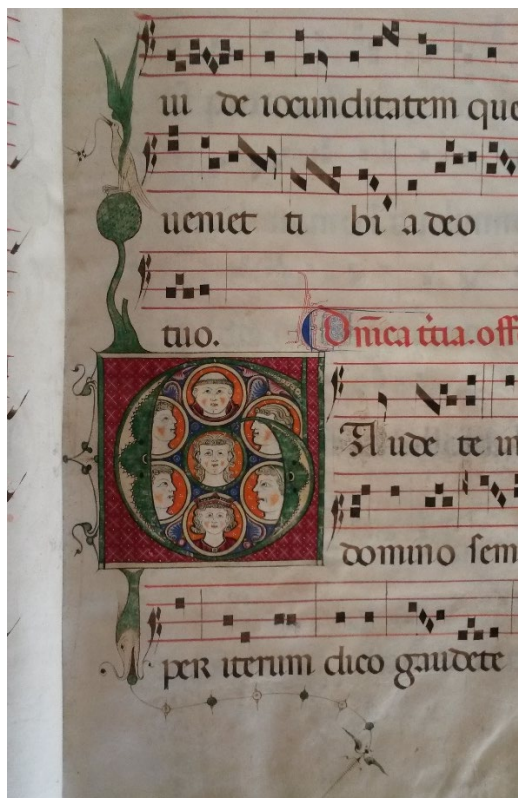 ui de iocunditatem que
ueniet ti bi a deo
tuo. Dn̄ica t̄cia. off
GAude te in
domino sem
per iterum dico gaudete